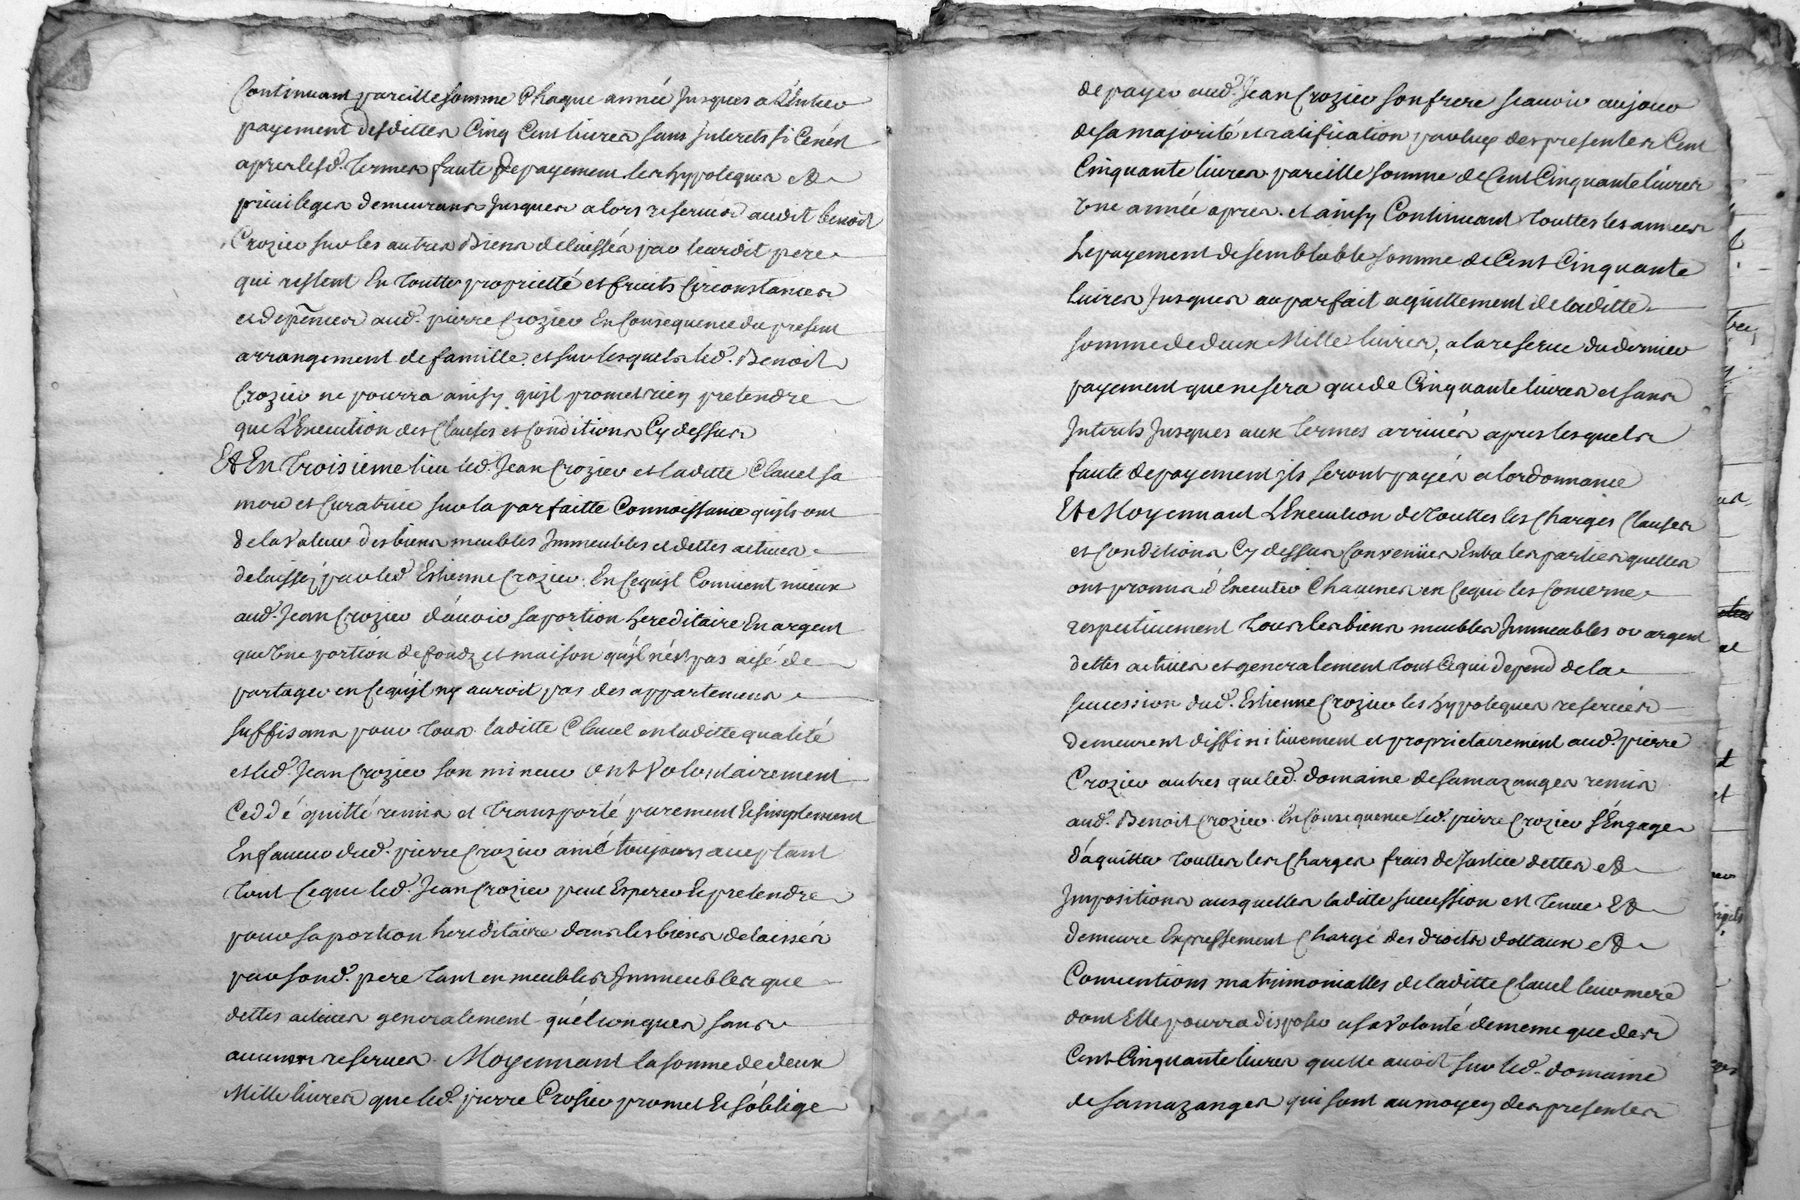 Continuant pareille somme Chaque année Jusques a L'Entier
payement desdittes Cinq Cent livres sans Interets si Cenést
apres lesd. termes faute de payement les hypoteques et
privileges demeurans Jusques alors reservés audit benoit
Crozier sur les autres Biens delaissés par leurdit pere
qui restent En toutte proprietté et fruits Circonstances
et depences aud. pierre Crozier En Consequence du present
arrangement de famille et sur lesquels led. Benoit
Crozier ne pourra ainsy quil promet rien pretendre
que L'Execution des Clauses et Conditions Cy dessus
Et En troisieme lieu led. Jean Crozier et laditte Clauel sa
mere et Curatrice sur la parfaitte Connoissance quils ont
de la Valeur des biens meubles Immeubles et dettes actives
delaissés par led. Estienne Crozier. En Cequil Convient mieux
aud. Jean Crozier d'avoir sa portion hereditaire En argent
que Une portion de fondz et maison quil nést pas aisé de
partager en Cequil ny auroit pas des appartemens
suffisans pour tous. laditte Clauel en laditte qualité
et led. Jean Crozier son mineur ont Volontairement
Ceddé quitté remis et transporté purement Et simplement
En faveur dud. pierre Crozier ainé toujours aceptant
tout Ceque led. Jean Crozier peut Esperer Et pretendre
pour sa portion hereditaire dans les biens delaissés
par sond. pere tant en meubles Immeubles que
dettes actives generalement quélconques sans
aucunes reserves. Moyennant la somme de deux
Mille livres que led. pierre Crosier promet Et s'oblige
de payer aud. Jean Crozier son frere scavoir au jour
de sa majorité et ratification par luy des presentes Cent
Cinquante livres pareille somme de Cent Cinquante livres
Une année apres. et ainsy Continuant touttes les années
Le payement de semblable somme de Cent Cinquante
livres Jusques au parfait aquittement de laditte
somme de deux Mille livres, a la reserve du dernier
payement que ne sera que de Cinquante livres et sans
Interets Jusques aux termes arrivés apres lesquels
faute de payement ils seront payés a lordonnance
Et Moyennant L'Execution de touttes les Charges Clauses
et Conditions Cy dessus Convenües Entre les parties quelles
ont promis d'Executer Chacunes en Cequi les Concerne
respectivement tous les biens meubles Immeubles ou argent
dettes actives et generalement tout Cequi depend de la
succession dud. Estienne Crozier les hypoteques reservées
demeurent diffinitivement et proprietairement aud. pierre
Crozier autres que led. domaine de samazanges remis
aud. Benoit Crozier. En Consequence led. pierre Crozier s'Engage
d'aquitter touttes les Charges frais de Justice dettes et
Impositions ausquelles laditte sucession est tenue Et
demeure Expressement Chargé des droits dottaux et
Conventions matrimonialles de laditte Clauel leur mere
dont Elle pourra disposer a sa Volonté de meme que des
Cent Cinquante livres quelle avoit sur led. domaine
de samazanges qui sont au moyen des presentes